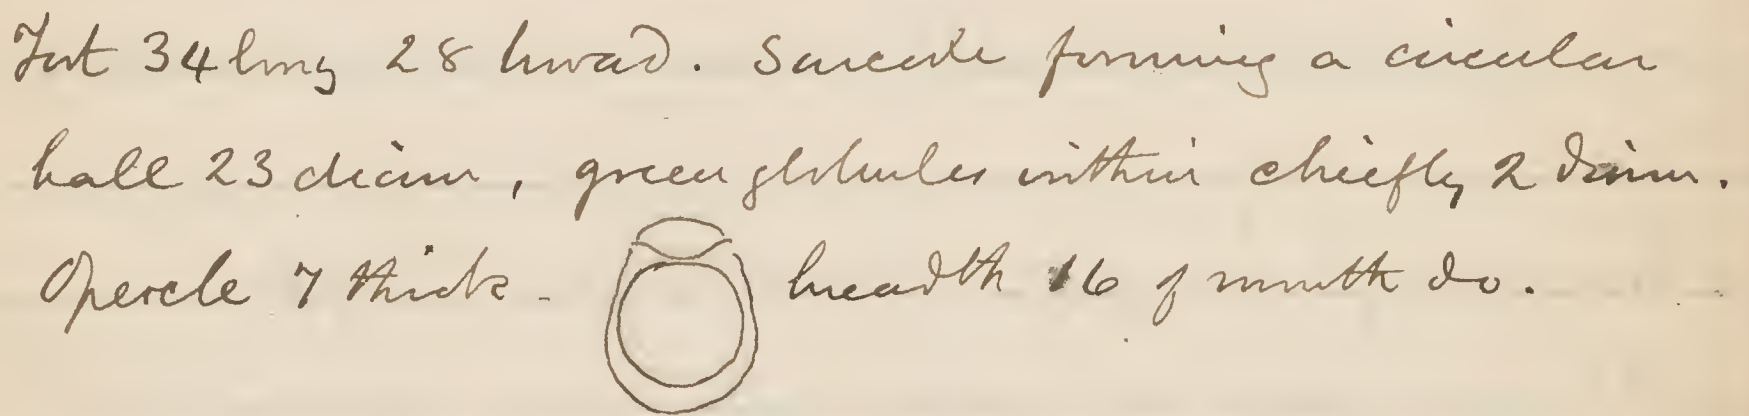 Test 34 long 28 broad. Sarcode forming a circular
ball 23 diam, green globules within chiefly 2 diam.
Opercle 7 thick - breadth 16 of mouth do.